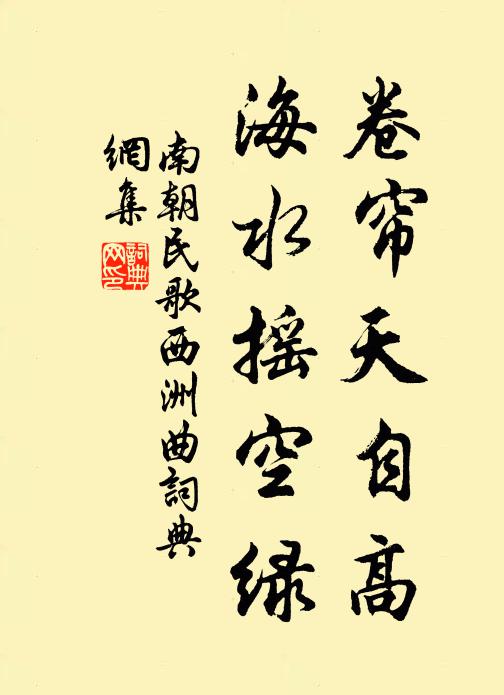 卷帘天自高
海水摇空绿
南朝民歌西洲曲詞典
網集
詞典网印